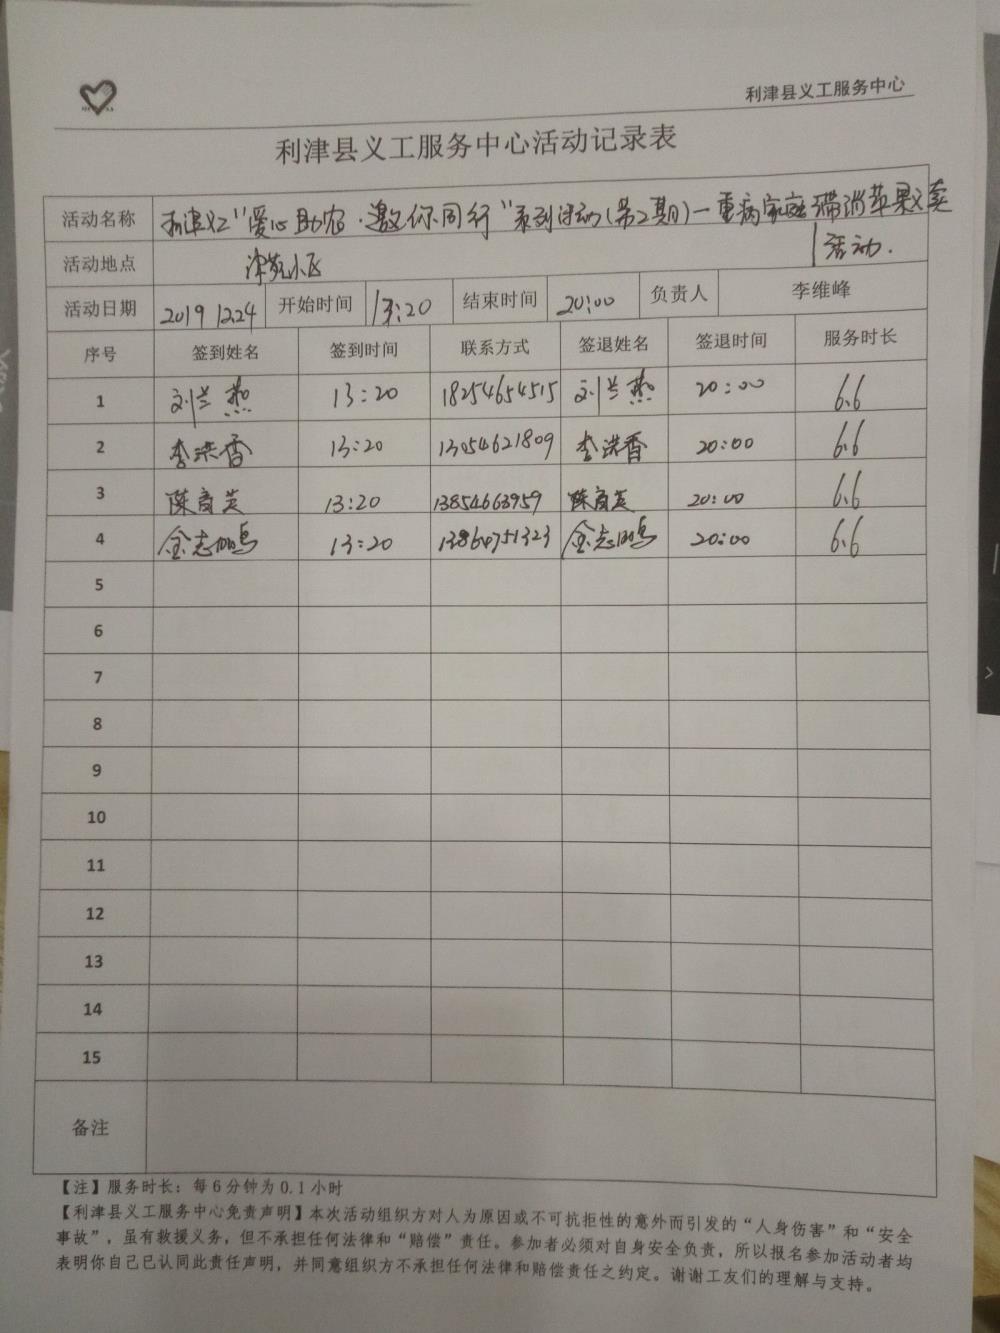 利津县义工服务中心
利津县义工服务中心活动记录表
活动名称 利津义工"爱心助农·邀你同行"系列活动(第2期)一重病家庭滞消苹果义卖
活动.
活动地点 津苑小区
活动日期 2019 12.24 开始时间 13:20 结束时间 20:00 负责人 李维峰
序号 签到姓名 签到时间 联系方式 签退姓名 签退时间 服务时长
1 刘兰燕 13:20 18254654515 刘兰燕 20:00 6.6
2 李洪香 13:20 13054621809 李洪香 20:00 6.6
3 陈育芝 13:20 13854663959 陈育芝 20:00 6.6
4 金志鸣 13:20 13864751323 金志鸣 20:00 6.6
5
6
7
8
9
10
11
12
13
14
15
备注
【注】服务时长：每6分钟为0.1小时
【利津县义工服务中心免责声明】本次活动组织方对人为原因或不可抗拒性的意外而引发的“人身伤害”和“安全
事故”，虽有救援义务，但不承担任何法律和“赔偿”责任。参加者必须对自身安全负责，所以报名参加活动者均
表明你自己已认同此责任声明，并同意组织方不承担任何法律和赔偿责任之约定。谢谢工友们的理解与支持。